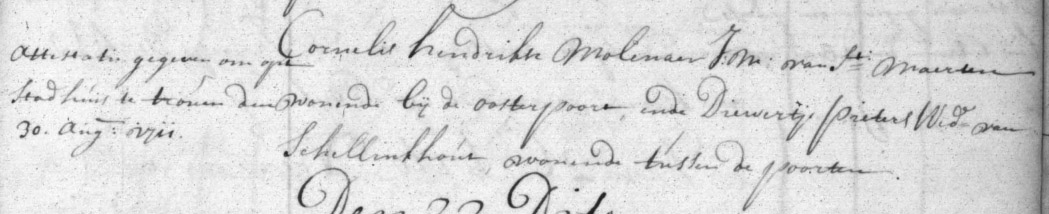 Attestatie gegeven om opt
Stadhuis te trouwen den
30. Aug:
Cornelis hendrikse Molenaer J:M: van St. Maerten
wonende bij de oosterpoort, ende Diewertje Pieters Wed.e van
Schellinkhout, wonende tussen de poorten.
Den 22 Dito